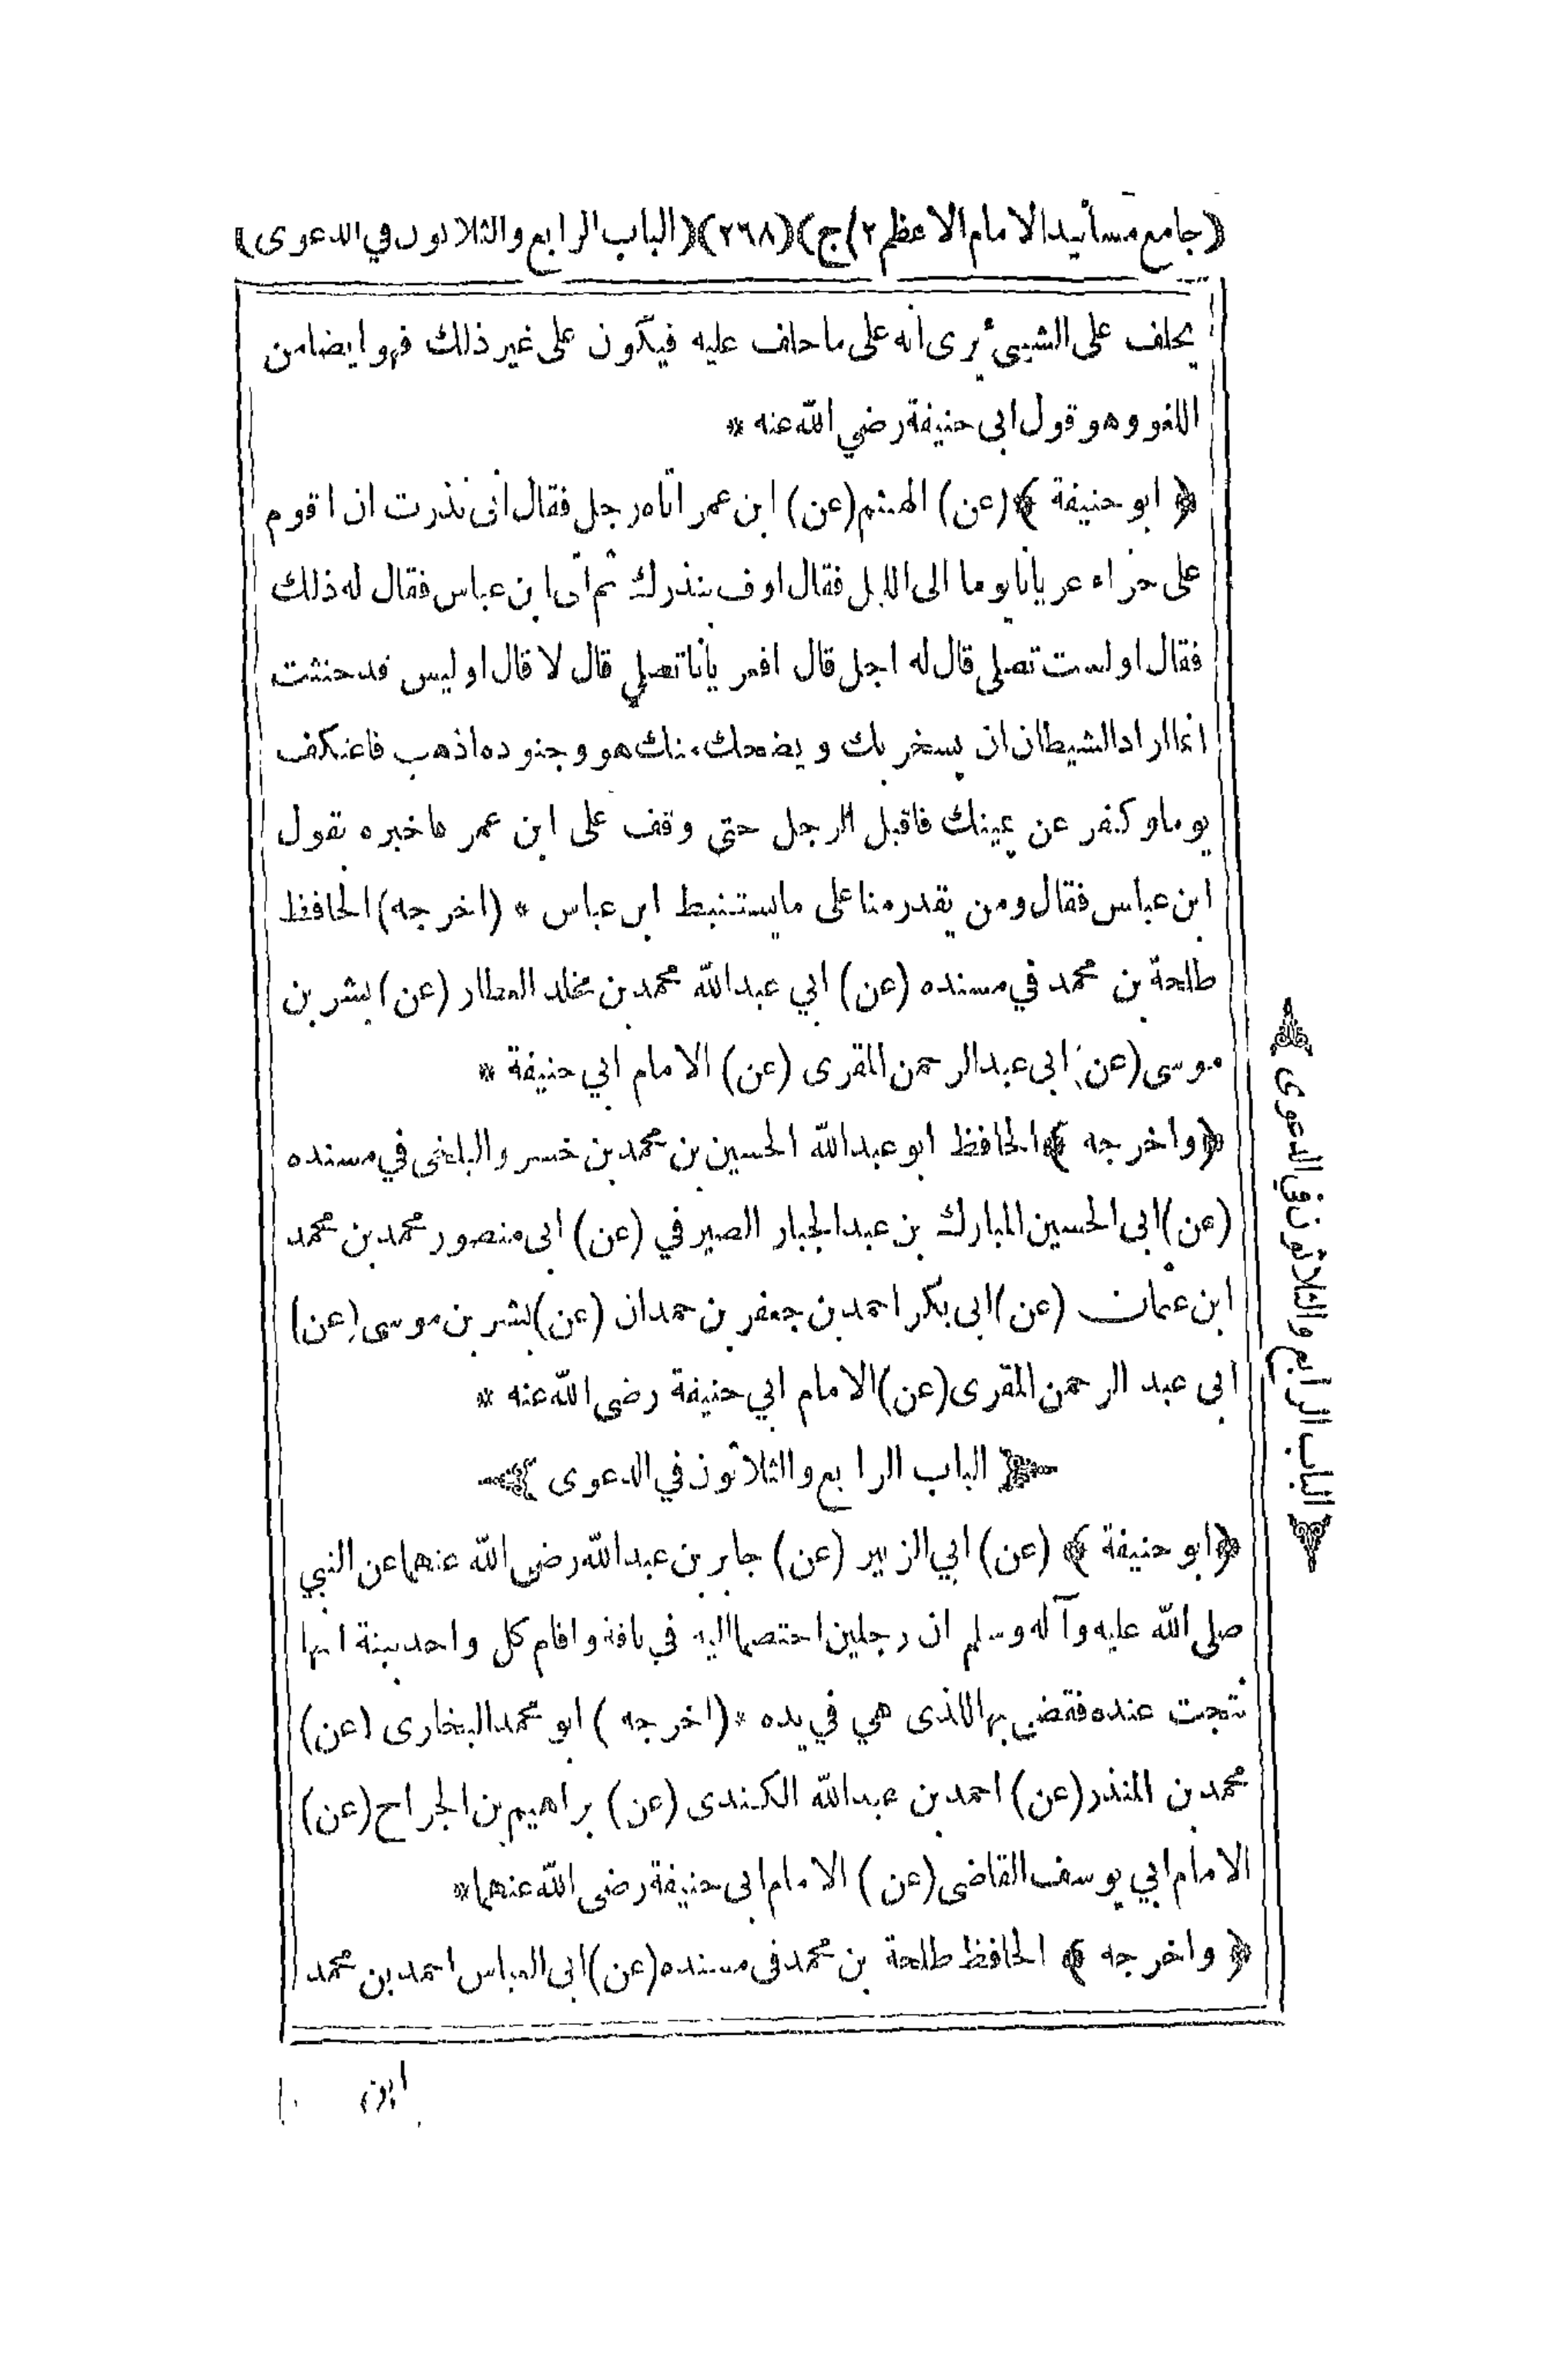 (جامع مسانيد الامام الاعظم ٢/ج)(٢٦٨)(الباب الرابع والثلاثون في الدعوى)
يحلف على الشيئ يرى انه على ما حلف عليه فيكون على غير ذلك فهو ايضا من
اللغو وهو قول ابى حنيفة رضي الله عنه *
﴿ ابو حنيفة ﴾ (عن) الهيثم (عن) ابن عمر اتاه رجل فقال انى نذرت ان اقوم
على حراء عريانا يوما الى الليل فقال اوف بنذرك ثم اتى ابن عباس فقال له ذلك
فقال اولست تصلى قال له اجل قال افعريانا تصلي قال لا قال اوليس قد حنثت
انما اراد الشيطان ان يسخر بك ويضحك منك هو وجنوده اذهب فاعتكف
يوما وكفر عن يمينك فاقبل الرجل حتى وقف على ابن عمر فاخبره بقول
ابن عباس فقال ومن يقدر منا على ما يستنبط ابن عباس * (اخرجه) الحافظ
طلحة بن محمد في مسنده (عن) ابي عبد الله محمد بن مخلد العطار (عن) بشر بن
موسى (عن) ابى عبد الرحمن المقرى (عن) الامام ابي حنيفة *
﴿واخرجه ﴾ الحافظ ابو عبد الله الحسين بن محمد بن خسرو البلخى في مسنده
(عن) ابى الحسين المبارك بن عبد الجبار الصيرفي (عن) ابى منصور محمد بن محمد
ابن عثمان (عن) ابى بكر احمد بن جعفر بن حمدان (عن) بشر بن موسى (عن)
ابى عبد الرحمن المقرى (عن) الامام ابي حنيفة رضى الله عنه *
الباب الرابع والثلاثون في الدعوى
﴿ابو حنيفة ﴾ (عن) ابي الزبير (عن) جابر بن عبد الله رضى الله عنهما عن النبي
صلى الله عليه وآله وسلم ان رجلين اختصما اليه في ناقة واقام كل واحد بينة انها
نتجت عنده فقضى بها للذى هي في يده * (اخرجه ) ابو محمد البخارى (عن)
محمد بن المنذر (عن) احمد بن عبد الله الكندى (عن) براهيم بن الجراح (عن)
الامام ابي يوسف القاضى (عن ) الامام ابى حنيفة رضى الله عنهما *
﴿ واخرجه ﴾ الحافظ طلحة بن محمد فى مسنده (عن) ابى العباس احمد بن محمد
ابن
الباب الرابع والثلاثون في الدعوى